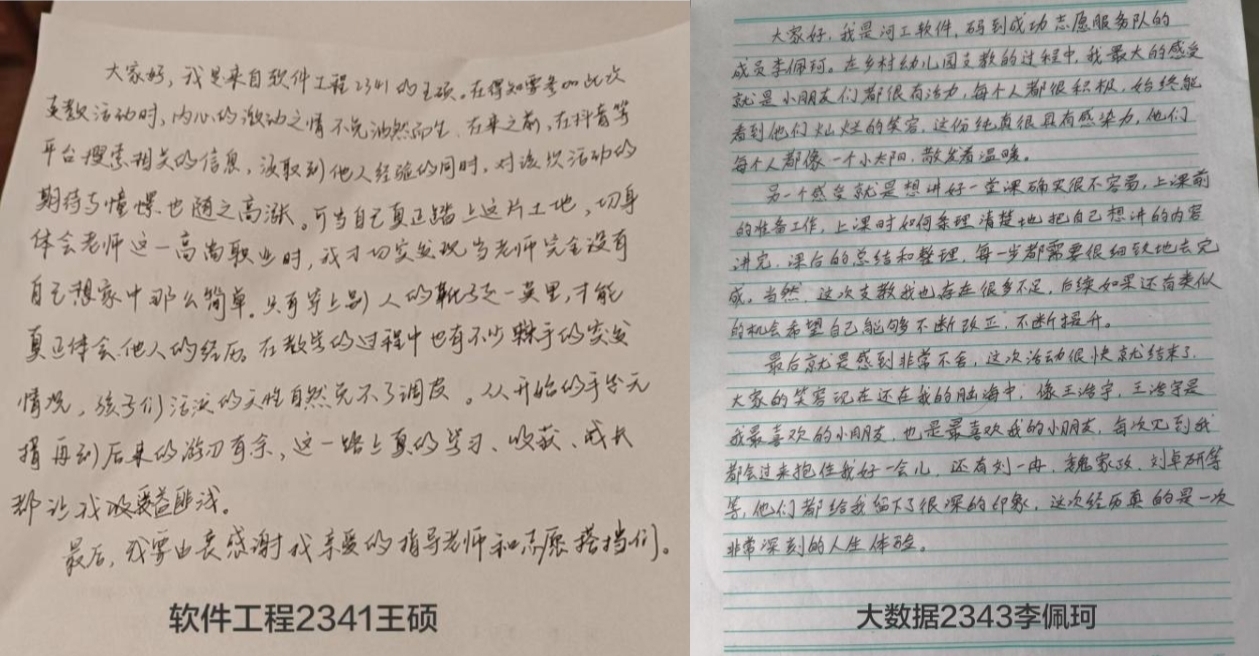 大家好，我是来自软件工程2341的王硕。在得知需参加此次
支教活动时，内心的激动之情不免油然而生，在来之前，在抖音等
平台搜索相关的信息，汲取到他人经验的同时，对该次活动的
期待与憧憬也随之高涨。可当自己真正踏上这片土地，切身
体会老师这一高尚职业时，我才切实发现当老师完全没有
自己想象中那么简单。只有穿上别人的靴子走一英里，才能
真正体会他人的经历。在教学的过程中也有不少棘手的突发
情况，孩子们活泼的天性自然免不了调皮。从开始的手足无
措再到后来的游刃有余，这一路上真的学习、收获、成长
都让我收获受益匪浅。
最后，我要由衷感谢我亲爱的指导老师和志愿搭档们。
软件工程2341王硕
大家好，我是河工软件，码到成功志愿服务队的
成员李佩珂。在乡村幼儿园支教的过程中，我最大的感受
就是小朋友们都很有活力，每个人都很积极，始终能
看到他们灿烂的笑容，这份纯真很具有感染力，他们
每个人都像一个小太阳，散发着温暖。
另一个感受就是想讲好一堂课确实很不容易，上课前
的准备工作，上课时如何条理清楚地把自己想讲的内容
讲完，课后的总结和整理，每一步都需要很细致地去完
成，当然，这次支教我也存在很多不足，后续如果还有类似
的机会希望自己能够不断改正，不断提升。
最后就是感到非常不舍，这次活动很快就结束了，
大家的笑容现在还在我的脑海中，像王浩宇，王浩宇是
我最喜欢的小朋友，也是最喜欢我的小朋友，每次见到我
都会过来抱住我好一会儿，还有刘一冉，魏家政，刘卓研等
等，他们都给我留下了很深的印象，这次经历真的是一次
非常深刻的人生体验。
大数据2343李佩珂